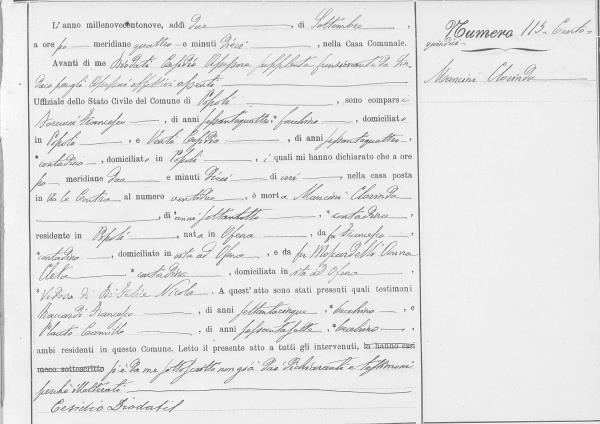 L'anno millenovecentonove, addì due, di Settembre,
a ore po meridiane quattro e minuti Dieci, nella Casa Comunale.
Avanti di me Diodati Cesidio Assessore supplente funzionante da Sin-
daco per gli Assessori effettivi assenti
Uffiziale dello Stato Civile del Comune di Popoli, sono comparsi
Francesco, di anni sessantaquattro, facchino, domiciliato
in Popoli, e Venti Cesidio, di anni sessantaquattro,
contadino, domiciliato in Popoli, i quali mi hanno dichiarato che a ore
po meridiane due e minuti Dieci di ieri, nella casa posta
in via le al numero ventidue, è morta Mancini Clorinda
, di anni settantotto, contadina,
residente in Popoli, nata in Ofena, da fu Francesco,
contadino, domiciliato in vita ad Ofena, e da fu Anna
Cleta contadina, domiciliata in vita ad Ofena,
Vedova di Nicola. A quest'atto sono stati presenti quali testimoni
Francesco, di anni settantacinque, becchino, e
Camillo, di anni sessantasette, becchino,
ambi residenti in questo Comune. Letto il presente atto a tutti gli intervenuti, lo hanno essi
meco sottoscritto si è da me sottoscritto non già dai dichiaranti e testimoni
perchè illetterati
Cesidio Diodati
Numero 115 Cento-
quindici
Mancini Clorinda